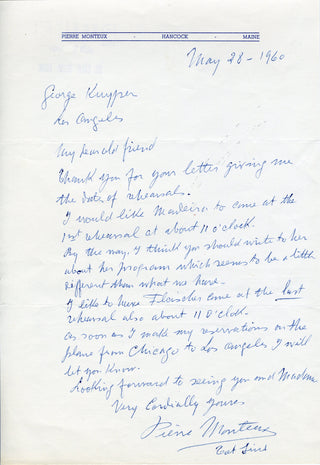 PIERRE MONTEUX · HANCOCK · MAINE
May 28 - 1960
George Kuyper
Los Angeles
My dear old friend
Thank you for your letter giving me
the dates of rehearsals.
I would like Madeira to come at the
1st rehearsal at about 11 o'clock.
By the way, I think you should write to her
about her program which seems to be a little
different than what we have.
I like to have Fleischer come at the last
rehearsal also about 11 o'clock.
as soon as I make my reservations on the
plane from Chicago to Los Angeles I will
let you know.
Looking forward to seeing you and Madame
Very Cordially Yours
Pierre Monteux